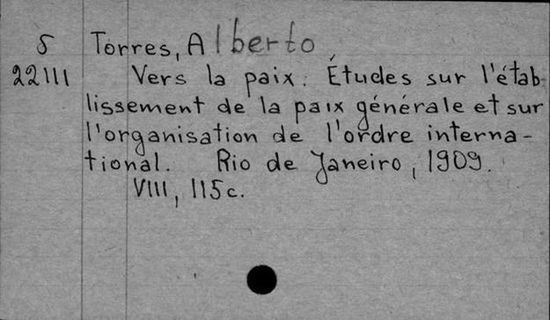 5 Torres, Alberto,
22111 Vers la paix. Études sur l'étab-
lissement de la paix générale et sur
l'organisation de l'ordre interna-
tional. Rio de Janeiro, 1909.
VIII, 115c.